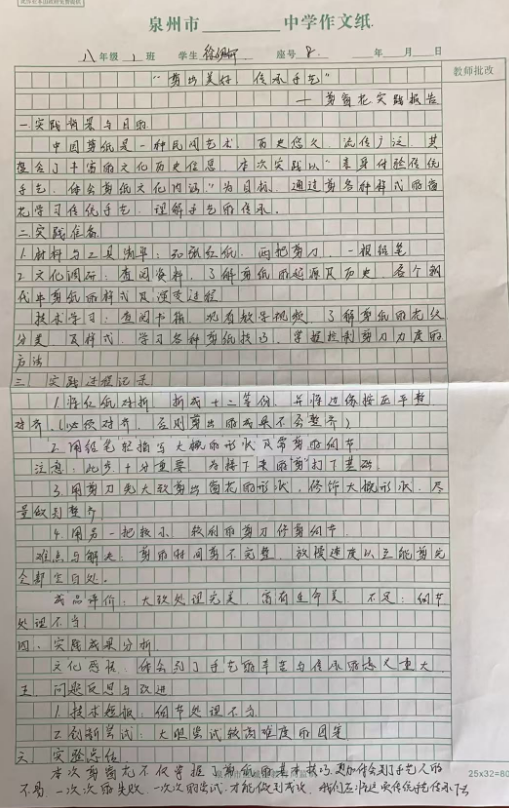 泉州市 中学作文纸
八年级 1 班 学生 座号 8. 年 月 日
教师批改
"剪出美好，传承手艺"
——剪窗花实践报告
一、实践背景与目的
中国剪纸是一种民间艺术，历史悠久，流传广泛，其
蕴含了丰富的文化历史信息，本次实践以"亲身体验传统
手艺，体会剪纸文化内涵"为目标，通过剪各种样式的窗
花学习传统手艺，理解手艺的传承。
二、实践准备
1.材料与工具清单：红纸，两把剪刀，一根铅笔
2.文化调研：查阅资料，了解剪纸的起源及历史，各个朝
代中剪纸的样式及演变过程
技术学习：查阅书籍，观看教学视频，了解剪纸的花纹
分类及样式，学习各种剪纸技巧，掌握控制剪刀力度的
方法
三、实践过程记录
1.将红纸对折，折成十二等份，并将边缘按压平整
对齐。(必须对齐，否则剪出的成果不会整齐)
2.用铅笔轻描写大概的形状及需剪的细节
注意：此步十分重要，为接下来的"剪"打下基础
3.用剪刀先大致剪出窗花的形状，修饰大概形状，尽
量做到整齐
4.用另一把较小、较利的剪刀修剪细节
难点与解决：剪的时间剪不完整，放慢速度以至能剪完
全部空白处。
成品评价：大致处理完美，富有生命美 不足：细节
处理不当
四、实践成果分析
文化方面，体会到了手艺的辛苦与传承的意义重大
五、问题反思与改进
1.技术短板：细节处理不当
2.创新尝试：大胆尝试较高难度的图案
六、实验总结
本次剪窗花不仅掌握了剪纸的基本技巧，更加体会到了手艺人的
不易，一次次的失败，一次次的尝试，才能做到成功，我们应将这项传统手艺传承下去
25x32=80